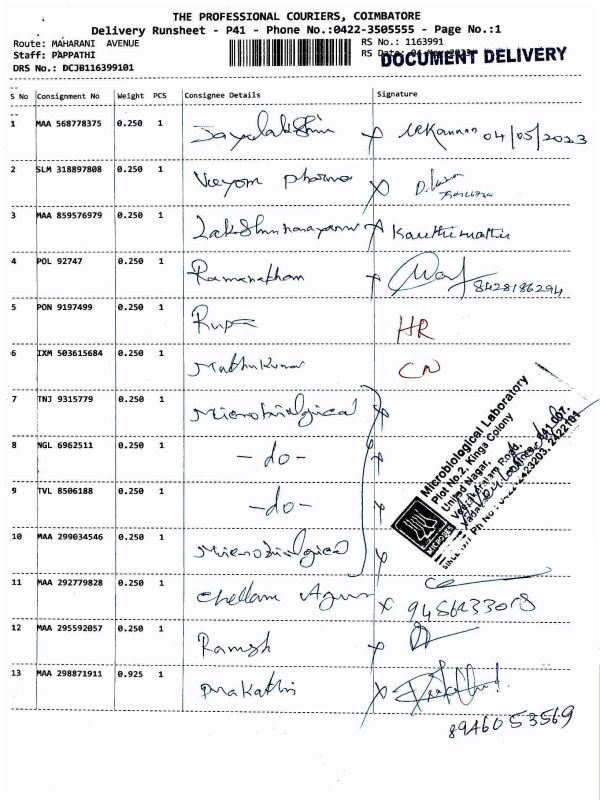 THE PROFESSIONAL COURIERS, COIMBATORE
Delivery Runsheet - P41 - Phone No.:0422-3505555 - Page No.:1
Route: MAHARANI AVENUE RS No.: 1163991
Staff: PAPPATHI RS Date: 04 May 2023
DOCUMENT DELIVERY
DRS No.: DCJB116399101
S No Consignment No Weight PCS Consignee Details Signature
1 MAA 568778375 0.250 1 Jayalakshmi x MRKannan 04/05/2023
2 SLM 318897808 0.250 1 Vreyom pharma x
3 MAA 859576979 0.250 1 Lakshminarayanan x Kauthimathi
4 POL 92747 0.250 1 Ramanathan x 8428186294
5 PON 9197499 0.250 1 Rupa HR
6 IXM 503615684 0.250 1 Mathukumar CN
7 TNJ 9315779 0.250 1 Microbiological x
8 NGL 6962511 0.250 1 -do- x
9 TVL 8506188 0.250 1 -do- x
10 MAA 299034546 0.250 1 Microbiological x
Microbiological Laboratory
Plot No.2, Kings Colony
United Nagar,
MICROBES
11 MAA 292779828 0.250 1 Chellam Agun x
12 MAA 295592057 0.250 1 Ramesh x
13 MAA 298871911 0.925 1 Prakathi x
8946053569